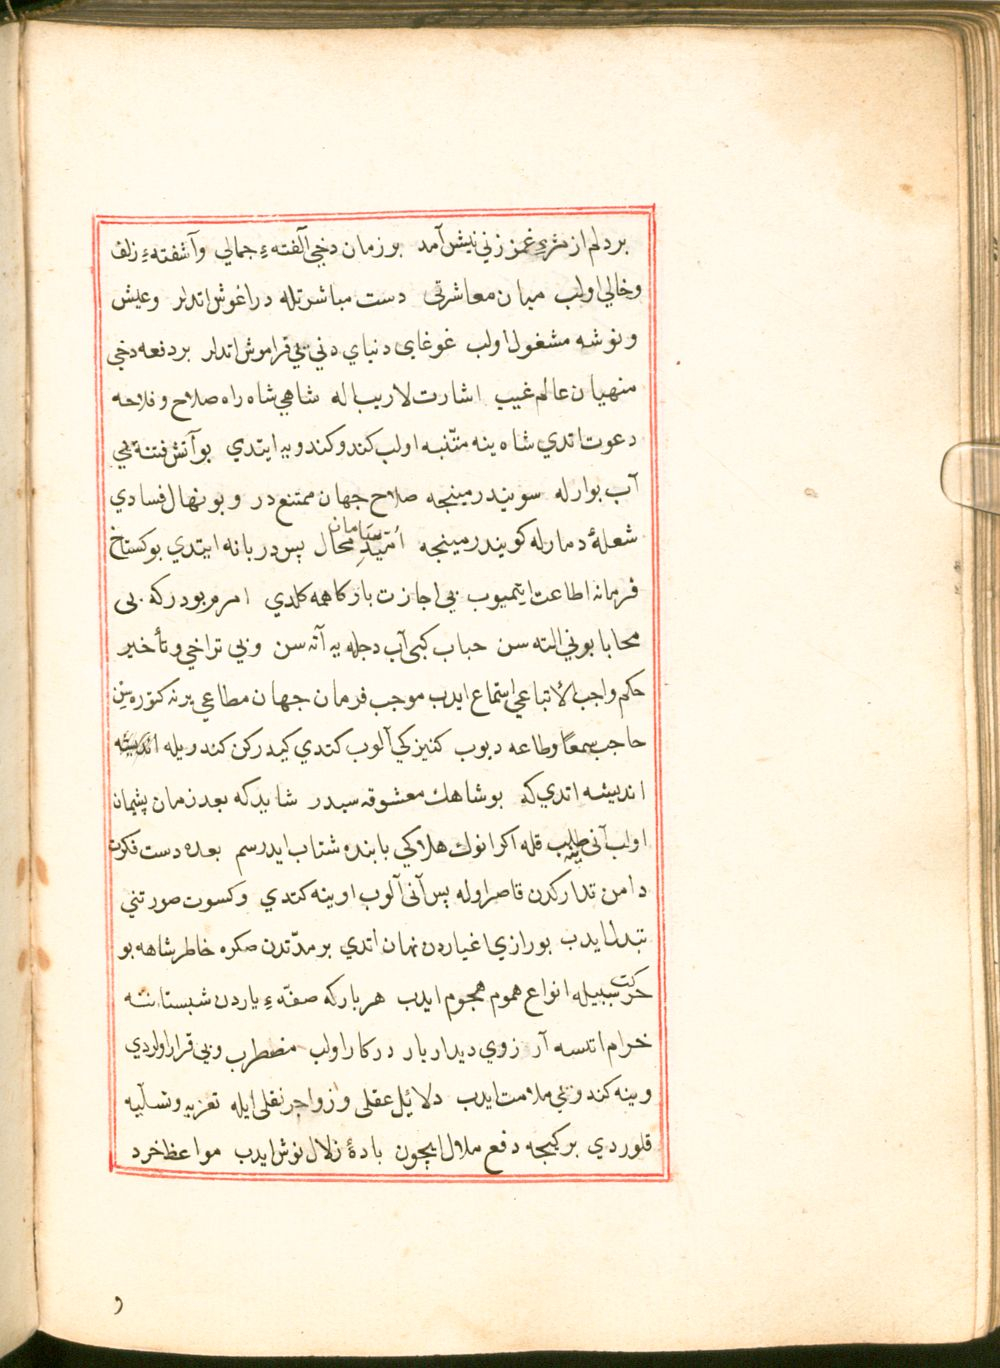 بر دلم از مژهٔ غمز زني نيش آمد بر زمان دخي آلفته ءِ جمالي وآشفته ءِ زلف
وخالي اولب ميان معاشرتى دست مباشرتله در اغوش اتدلر وعيش
ونوشه مشغول اولب غوغاى دنياي دني يي فراموش اتدلر بر دفعه دخي
منهيان عالم غيب اشارت لاريب اله شاهي شاه راه صلاح وفلاحه
دعوت اتدي شاه ينه متنبه اولب كندو كندويه ايتدي بو آتش فتنه يي
آب بوارله سويندرمينجه صلاح جهان ممتنع در وبو نهال فسادي
شعلهٔ دمارله كويندرمينجه اُمّيدِ سَامان محال پس دربانه ايتدي بو كستاخ
فرمانه اطاعت ايتميوب بى اجازت باركاهمه كلدي امرم بودركه بى
محابا بوني الته سن حباب كبى آب دجله يه آته سن وبي تراخي وتأخير
حكم واجب الأتباعي استماع ايدب موجب فرمان جهان مطاعي يرنه كتوره سِن
حاجب سمعًا وطاعه ديوب كنيزكي آلوب كتدي كيدركن كندويله
انديشه اتدي كه بو شاهك معشوقه سيدر شايد كه بعد زمان پشيمان
اولب آنى طلب قله اكر انوك هلاكي بابنده شتاب ايدرسم بعده دست فكرت
دامن تداركدن قاصر اوله پس آنى آلوب اوينه كتدي وكسوت صورتني
تبديل ايدب بو رازي اغياردن نهان اتدي بر مدّتدن صكره خاطر شاهه بو
حركت سببيله انواع هموم هجوم ايدب هر بار كه صفّه ءِ باردن شبستاننه
خرام اتسه آرزوي ديدار يار دركار اولب مضطرب وبي قرار اولردي
وينه كندويي ملامت ايدب دلائل عقلى وزواجر نقلى ايله تعزيه وتسليه
قلوردي بر كيجه دفع ملال ايچون بادهٔ زلال نوش ايدب مواعظ خرد
و